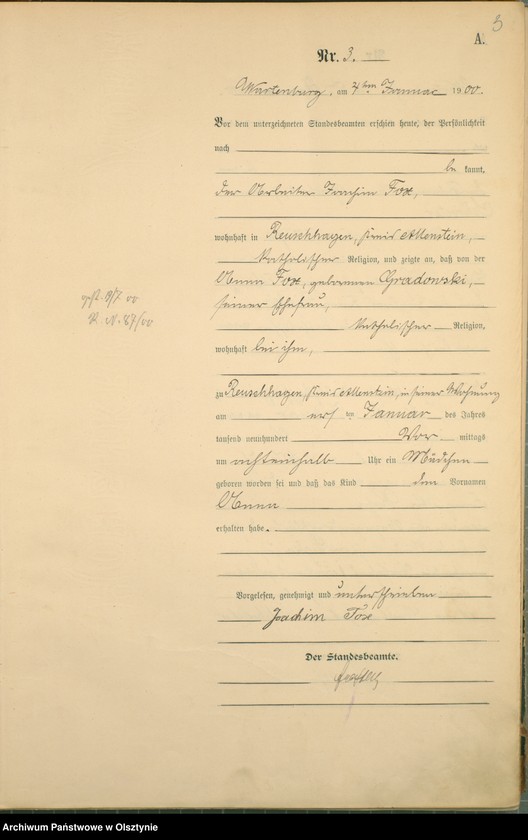 3
A.
Nr. 3.
Wartenburg, am 4ten Januar 1900.
Vor dem unterzeichneten Standesbeamten erschien heute, der Persönlichkeit
nach
be kannt,
der Arbeiter Joachim Fox,
wohnhaft in Reuschhagen, Kreis Allenstein,
katholischer Religion, und zeigte an, daß von der
Anna Fox, geborenen Gradowski,
seiner Ehefrau,
katholischer Religion,
wohnhaft bei ihm,
zu Reuschhagen, Kreis Allenstein, in seiner Wohnung
am ersten Januar des Jahres
tausend neunhundert Vor mittags
um achteinhalb Uhr ein Mädchen
geboren worden sei und daß das Kind den Vornamen
Anna
erhalten habe.
gest. 9/7 00
R. N. 87/00
Vorgelesen, genehmigt und unterschrieben
Joachim Fox
Der Standesbeamte.
Archiwum Państwowe w Olsztynie